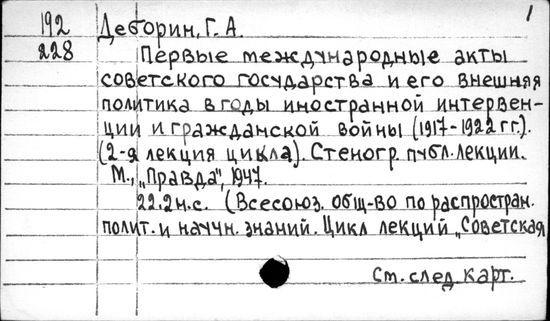 1
192 Деборин, Г. А.
228 Первые международные акты
советского государства и его внешняя
политика в годы иностранной интервен-
ции и гражданской войны (1917-1922 гг.).
(2-я лекция цикла). Стеногр. публ. лекции.
М., „Правда", 1947.
22.2 н.с. (Всесоюз. общ-во по распростран.
полит. и научн. знаний. Цикл лекций „Советская
См. след. карт.